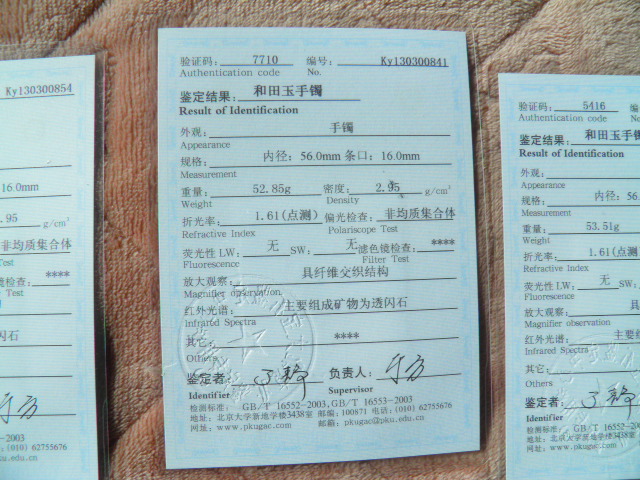 Ky130300854
16.0mm
.95 g/cm³
非均质集合体
Test
检查: ****
Test
闪石
-2003
: (010) 62755676
ku.edu.cn
验证码: 7710 编号: Ky130300841
Authentication code No.
鉴定结果: 和田玉手镯
Result of Identification
外观: 手镯
Appearance
规格: 内径: 56.0mm 条口: 16.0mm
Measurement
重量: 52.85g 密度: 2.95 g/cm³
Weight Density
折光率: 1.61(点测) 偏光检查: 非均质集合体
Refractive Index Polariscope Test
荧光性 LW: 无 SW: 无 滤色镜检查: ****
Fluorescence Filter Test
放大观察: 具纤维交织结构
Magnifier observation
红外光谱: 主要组成矿物为透闪石
Infrared Spectra
其它: ****
Others
鉴定者: 负责人:
Identifier Supervisor
检测标准: GB/T 16552-2003, GB/T 16553-2003
地址: 北京大学新地学楼3438室 邮编: 100871 电话: (010) 62755676
网址: www.pkugac.com 邮箱: pkugac@pku.edu.cn
验证码: 5416 编
Authentication code No
鉴定结果: 和田玉手镯
Result of Identification
外观:
Appearance
规格: 内径: 56
Measurement
重量: 53.51g
Weight
折光率: 1.61(点测
Refractive Index
荧光性 LW: 无 SW:
Fluorescence
放大观察: 具
Magnifier observation
红外光谱: 主要组
Infrared Spectra
其它:
Others
鉴定者:
Identifier
检测标准: GB/T 16552-2003
地址: 北京大学新地学楼3438室
网址: www.pkugac.com